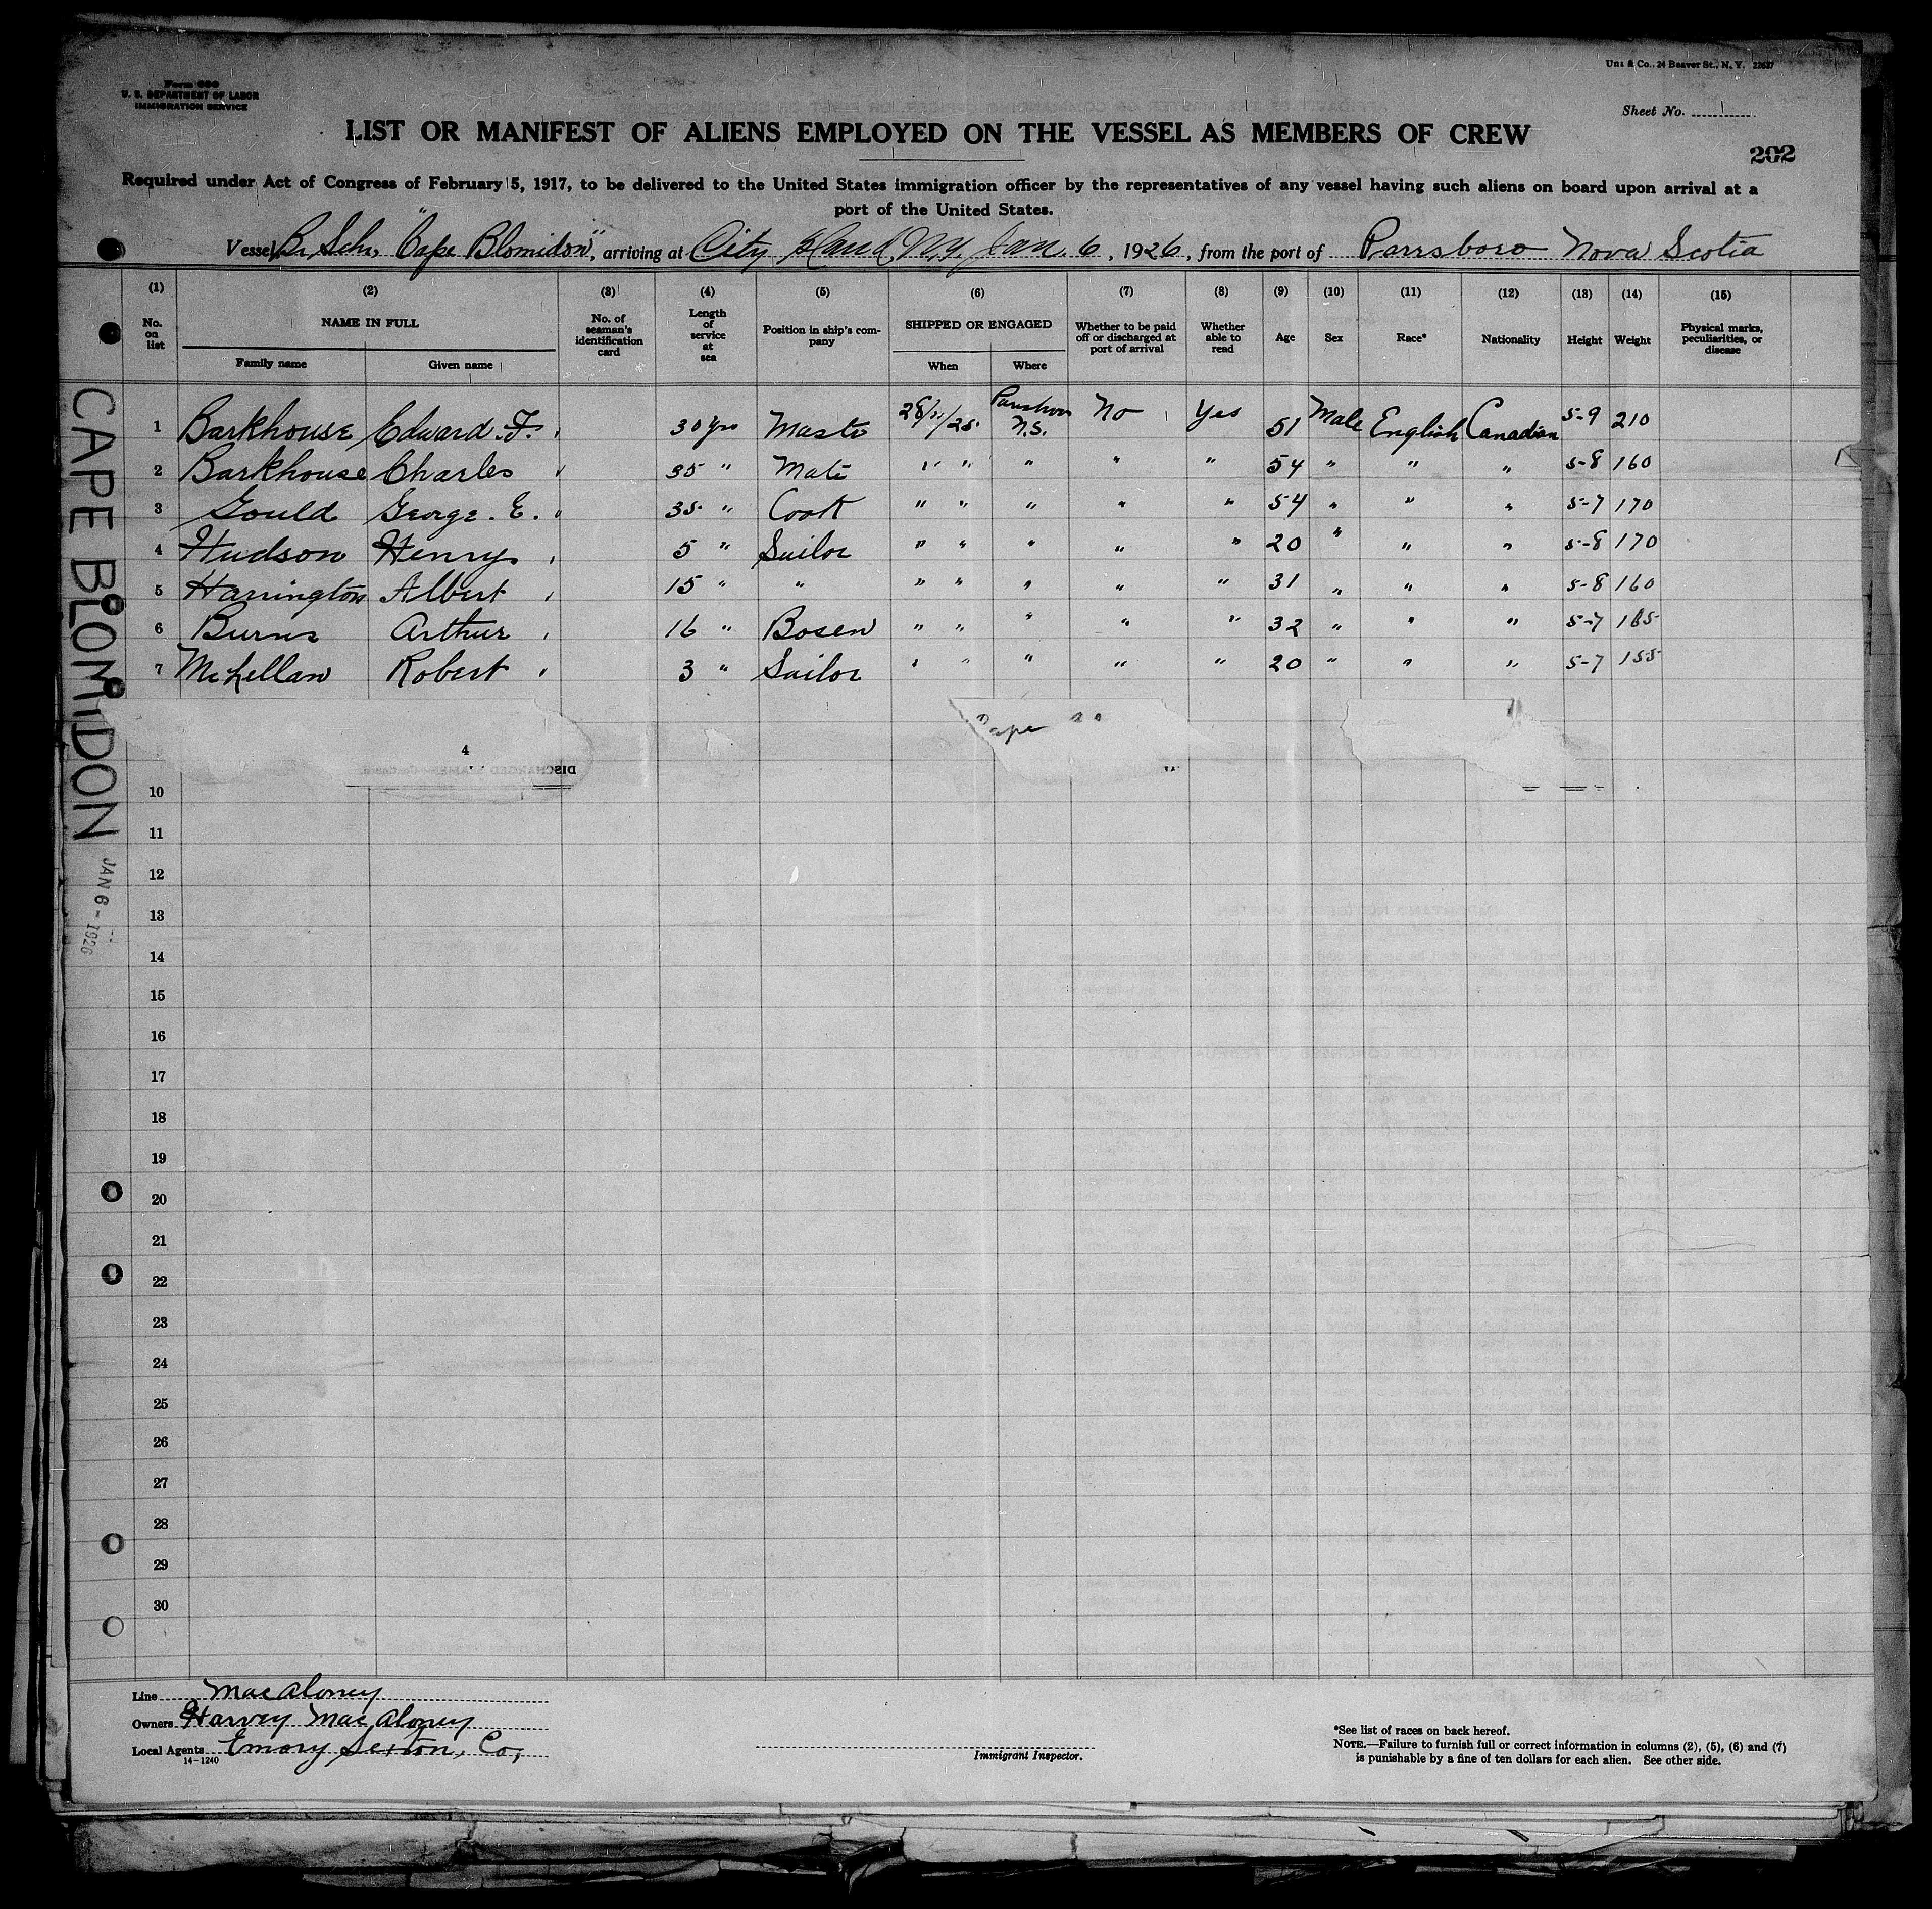 Form 680
U. S. DEPARTMENT OF LABOR
IMMIGRATION SERVICE
Uns & Co., 24 Beaver St., N. Y. 22637
Sheet No. 1
LIST OR MANIFEST OF ALIENS EMPLOYED ON THE VESSEL AS MEMBERS OF CREW
202
Required under Act of Congress of February 5, 1917, to be delivered to the United States immigration officer by the representatives of any vessel having such aliens on board upon arrival at a
port of the United States.
Vessel Br. Schr. "Cape Blomidon", arriving at City Island N.Y. Jan. 6, 1926, from the port of Parrsboro Nova Scotia
(1) (2) (3) (4) (5) (6) (7) (8) (9) (10) (11) (12) (13) (14) (15)
No. on list NAME IN FULL Family name Given name No. of seaman's identification card Length of service at sea Position in ship's company SHIPPED OR ENGAGED When Where Whether to be paid off or discharged at port of arrival Whether able to read Age Sex Race* Nationality Height Weight Physical marks, peculiarities, or disease
1 Barkhouse Edward. F. 30 yrs Master 28/11/25 Parrsboro N.S. No Yes 51 Male English Canadian 5-9 210
2 Barkhouse Charles 35 " Mate " " " " " 54 " " " 5-8 160
3 Gould George. E. 35 " Cook " " " " " 54 " " " 5-7 170
4 Hudson Henry 5 " Sailor " " " " " 20 " " " 5-8 170
5 Harrington Albert 15 " " " " " " " 31 " " " 5-8 160
6 Burns Arthur 16 " Bosen " " " " " 32 " " " 5-7 165
7 McLellan Robert 3 " Sailor " " " " " 20 " " " 5-7 155
Cape
4
DISCHARGED SEAMEN—Continued
10
11
12
13
14
15
16
17
18
19
20
21
22
23
24
25
26
27
28
29
30
CAPE BLOMIDON
JAN 6 - 1926
Line MacAloney
Owners Harvey MacAloney
Local Agents Emory Sexton, Co,
14-1240
Immigrant Inspector.
*See list of races on back hereof.
NOTE.—Failure to furnish full or correct information in columns (2), (5), (6) and (7)
is punishable by a fine of ten dollars for each alien. See other side.